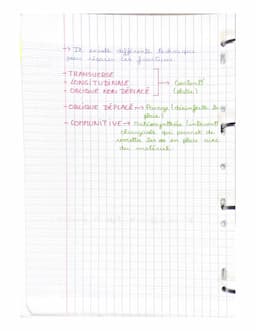 → Il existe différente technique
pour réparer les fractures
- TRANSVERSE
- LONGITUDINALE → Contentif
- OBLIQUE NON DÉPLACÉ (plâtre)
- OBLIQUE DÉPLACÉ → (désinfecte la
plaie)
- COMMUNITIVE → Ostéosynthèse (intervent°
chirurgicale qui permet de
remettre l'os en place avec
du matériel.